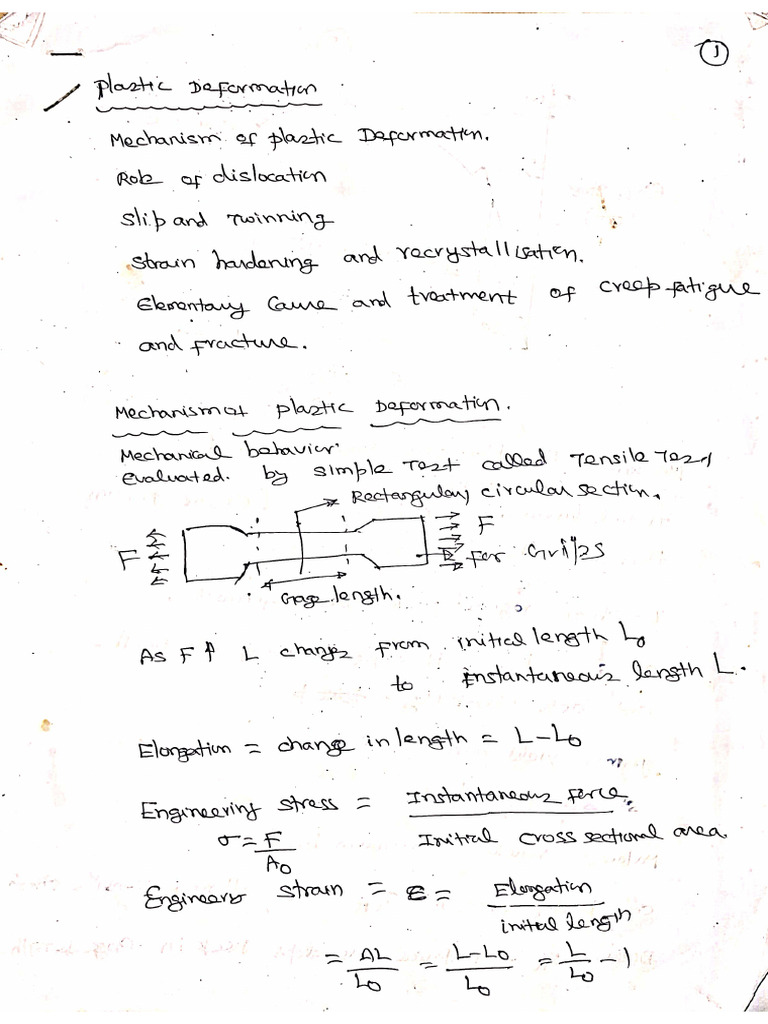 1
Plastic Deformation
Mechanism of plastic Deformation.
Role of dislocation
Slip and Twinning
Strain hardening and recrystallisation.
Elementary Cause and treatment of creep fatigue
and fracture.
Mechanism of plastic Deformation.
Mechanical behavior
evaluated. by simple Test called Tensile Test
Rectangular, circular section.
F F
for Grips
Gage length.
As F ↑ L changes from initial length L₀
to instantaneous length L.
Elongation = change in length = L-L₀
Engineering stress = Instantaneous force
σ = F/A₀ Initial cross sectional area
Strain = ε = Elongation
initial length
= ΔL/L₀ = L-L₀/L₀ = L/L₀ - 1